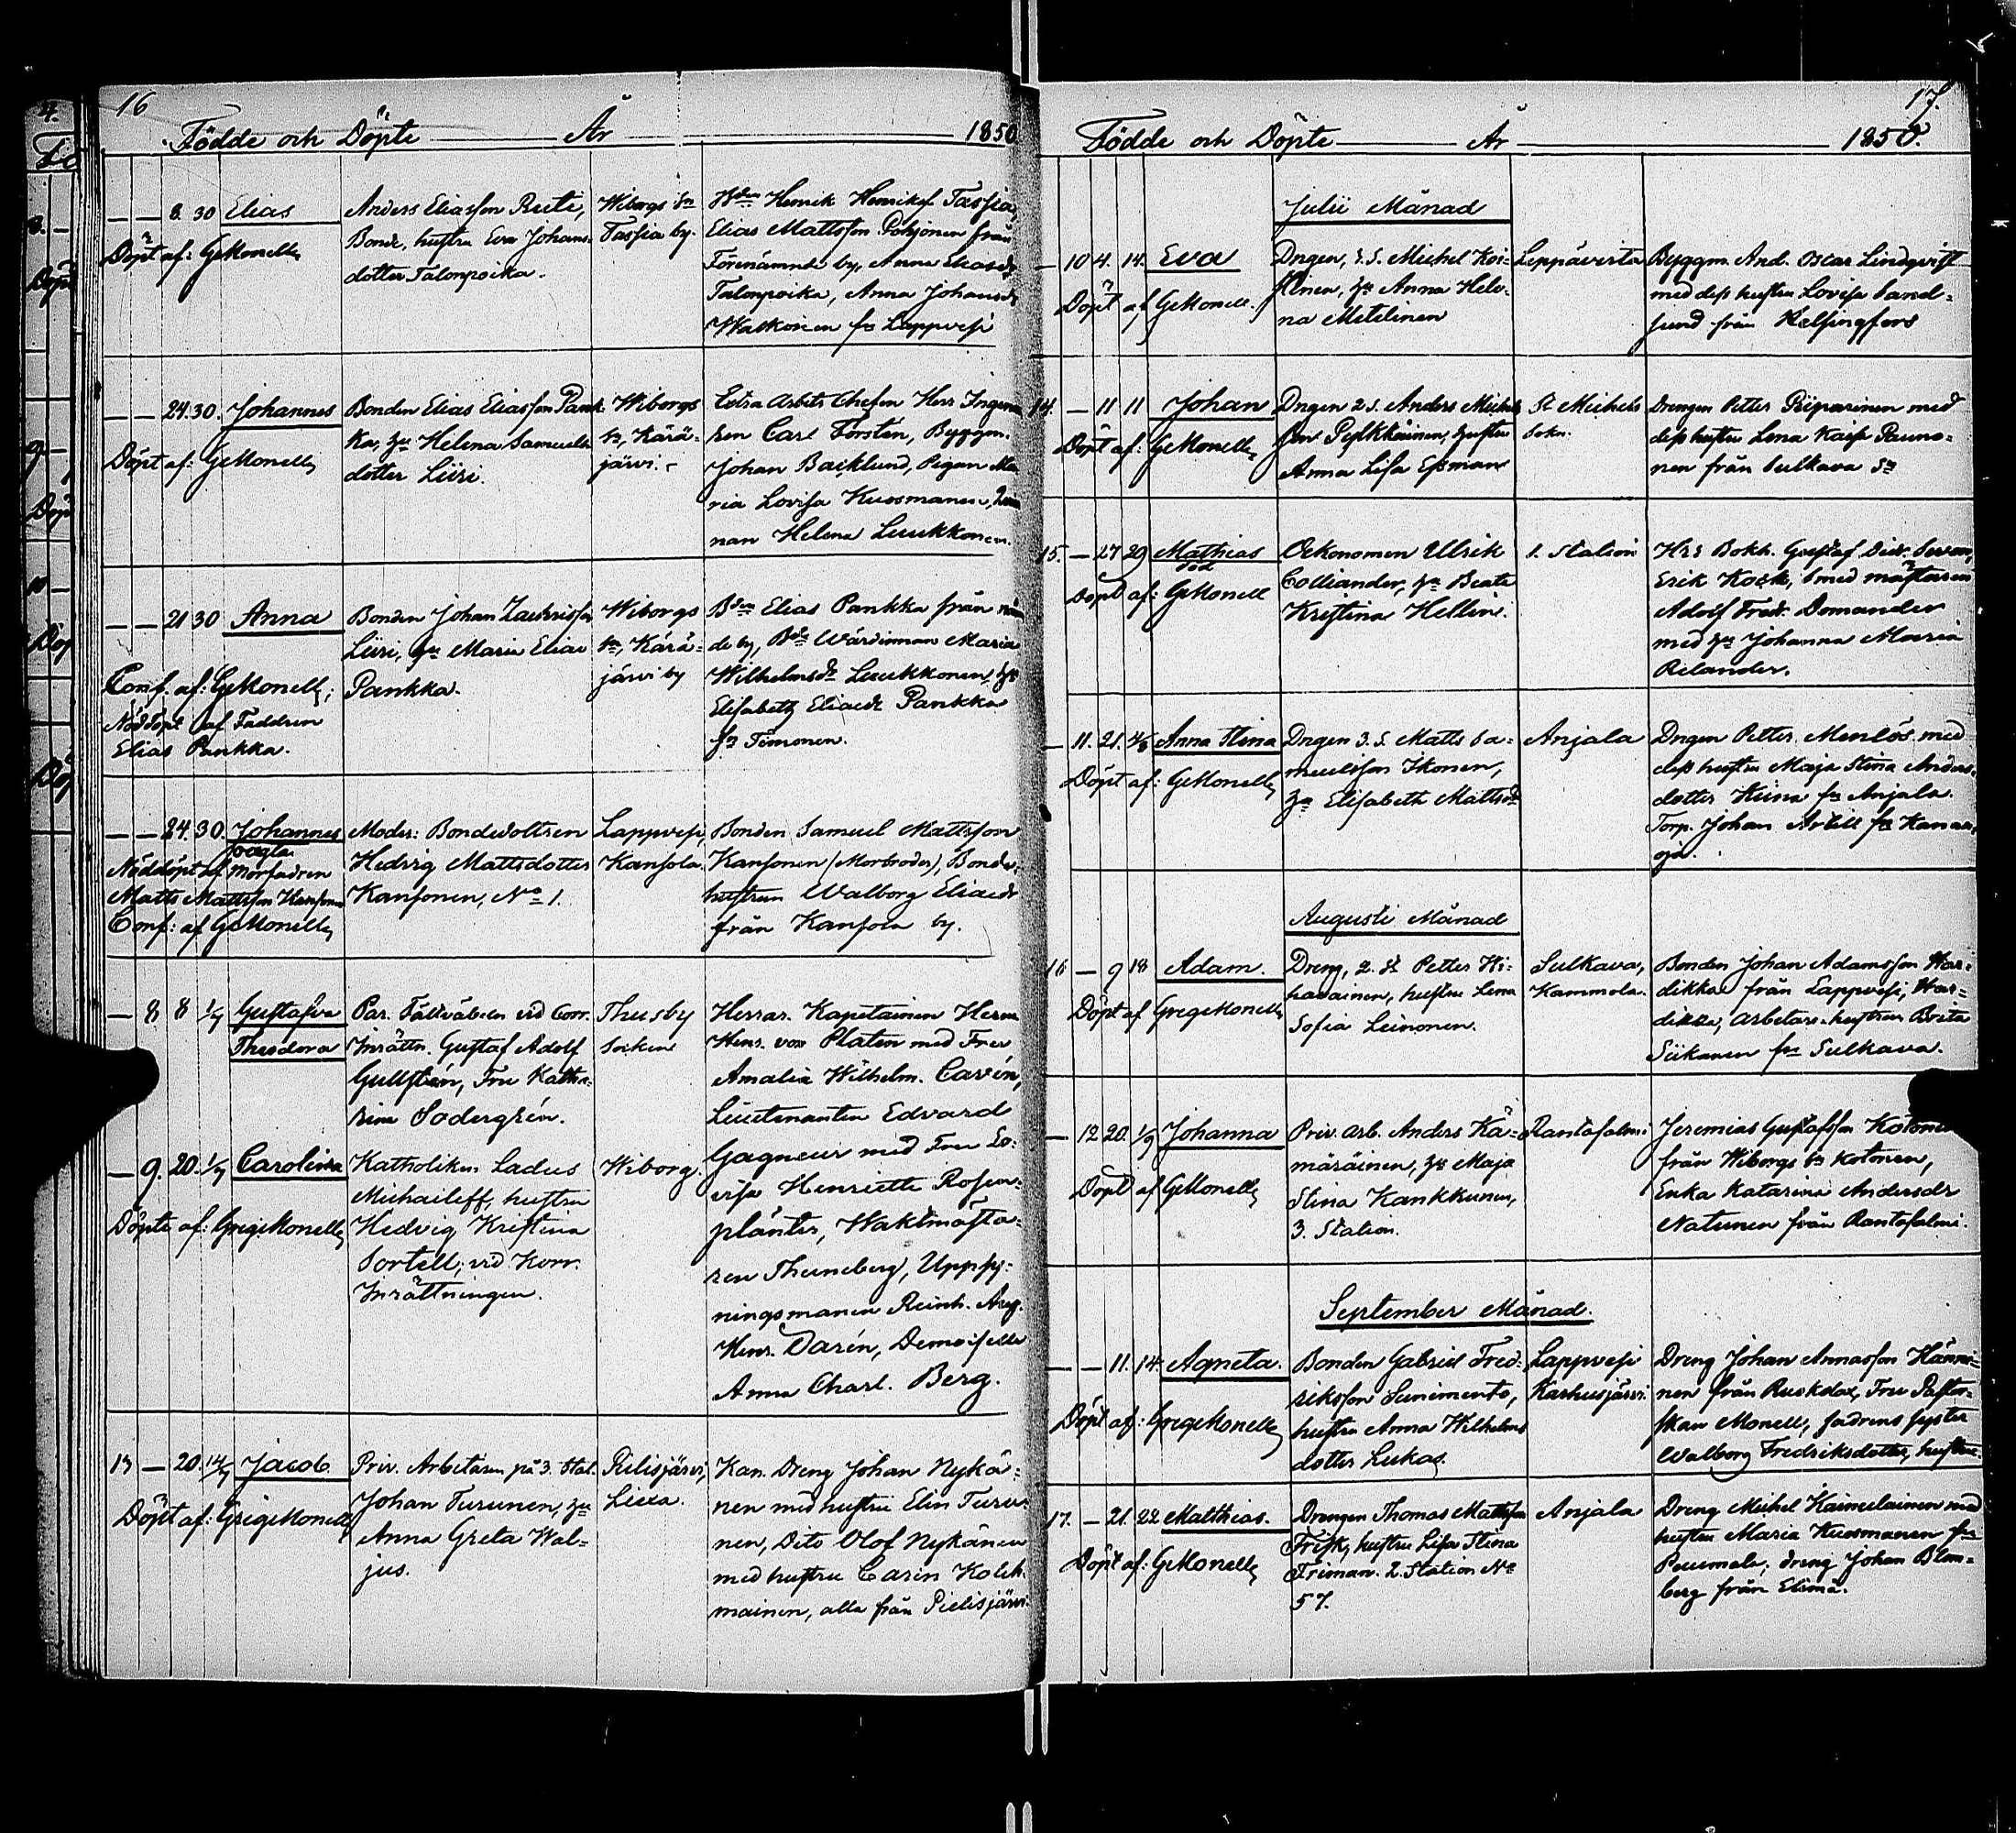 16
Födde och Döpte År 1850
— — 8. 30 Elias
Döpt af: GMonell
Anders Eliasson Ruti,
Bonde, hustru Eva Johans-
dotter Talonpoika.
Wiborgs sn
Tassia by.
Bden Henrik Henriksf Tassia,
Elias Mattsson Pohjonen från
Förenämnde by, Anna Eliasdr
Talonpoika, Anna Johansdr
Walkonen fr Lappvesi
— — 24. 30. Johannes
Döpt af: GMonell
Bonden Elias Eliasson Pank-
ka, hu Helena Samuels-
dotter Liiri.
Wiborgs
sn, Kärä-
järvi.
Extra Arbets Chefen Herr Ingeniö-
ren Carl Forstén, Byggm.
Johan Backlund, Pigan Ma-
ria Lovisa Kuosmanen,
nan Helena Luukkonen.
— — 21 30 Anna
Conf. af: GMonell;
Nöddöpt af Faddren
Elias Pankka.
Bonden Johan Zachrisson
Liiri, hu Maria Eliae
Pankka.
Wiborgs
sn, Kärä-
järvi by
Bden Elias Pankka från näm
de by, Bde Wärdinnan Maria
Wilhelmsdr Luukkonen, hu
Elisabeth Eliaedr Pankka
fr Timonen.
— — 24. 30. Johannes
oägta
Nöddöpt af Morfadren
Matts Mattsson Kansonen
Conf: af GMonell
Moder: Bondedottren
Hedvig Mattsdotter
Kansonen, No 1.
Lappvesi,
Kansola
Bonden Samuel Mattsson
Kansonen (Morbroder), Bonde-
hustrun Walborg Eliaedr
från Kansola by.
— 8 8 1/7 Gustafva
Theodora
Par. Fältväbeln vid Corr.
Inrättn. Gustaf Adolf
Gullstén, Fru Katha-
rina Södergrén.
Thusby
Socken
Herrar. Kapitainen Herm
Henr. von Platen med Fru
Amalia Wilhelm. Cavén,
Lieutenanten Edvard
Gagneur med Fru Lo-
visa Henriette Rosen-
planter, Waktmästa-
ren Thuneberg, Uppsy-
ningsmannen Reinh. Aug.
Henr. Darén, Demoiselle
Anna Charl. Berg.
— 9. 20. 1/7 Carolina
Döpte af: GregMonell
Katholiken Ladus
Michaileff, hustru
Hedvig Kristina
Sortell; vid Korr.
Inrättningen.
Wiborg.
13 — 20. 14/7 Jacob
Döpt af: GregMonell
Priv. Arbetaren på 3. Stat.
Johan Turunen, hu
Anna Greta Wal-
jus.
Pielisjärvi,
Liexa.
Kan. Dreng Johan Nykä-
nen med hustru Elin Turu-
nen, Dito Olof Nykänen
med hustru Carin Koleh-
mainen, alla från Pielisjärvi.
17.
Födde och Döpte År 1850.
Julii Månad
— 10 4. 14. Eva
Döpt af GMonell.
Dngen, 2. S. Michel Koi-
stinen, hu Anna Hele-
na Metilinen
Leppävirta
Byggm. And. Oscar Lindqvist
med dess hustru Lovisa Sand-
sund från Helsingfors
14. — 11 11 Johan
Döpt af: GMonell
Dngen 2 S. Anders Michels
son Pelkkäinen, hustru
Anna Lisa Essman
St Michels
Sokn.
Drengen Petter Piiparinen med
dess hustru Lena Kaisa Pauno-
nen från Sulkava Sn
15. — 27 29 Mathias
död
Döpt af: GMonell
Oekonomen Ulrik
Colliander, hu Beata
Kristina Hellin.
1. Station
Hrr Bokh. Gustaf Didr.
Erik Kock, Smed mästaren
Adolf Fredr. Domander
med hu Johanna Maria
Relander.
— 11. 21. 4/8 Anna Stina
Döpt af: GMonell
Dngen 3. S. Matts Sa-
muelsson Ikonen,
hu Elisabeth Mattsdr
Anjala
Dngen Petter Menlös med
dess hustru Maja Stina Anders-
dotter Kiina fr Anjala
Torp. Johan Artell fr Kanan-
oja.
Augusti Månad
16 — 9 18 Adam.
Döpt af GregMonell
Dreng, 2. St Petter Hi-
havainen, hustru Lena
Sofia Leinonen.
Sulkava,
Kammola.
Bonden Johan Adamsson War-
dikka från Lappvesi, War-
dikka, Arbetars-hustrun Brita
Siikanen fr Sulkava.
— 12 20. 1/9 Johanna
Döpt af GMonell
Priv. Arb. Anders Kä-
märäinen, hu Maja
Stina Kankkunen,
3. Station.
Rantasalmi
Jeremias Gustafsson Kotonen
från Wiborgs sn Kotonen,
Enka Katarina Andersdr
Natunen från Rantasalmi.
September Månad.
— — 11. 14. Agneta.
Döpt af: GregMonell
Bonden Gabriel Fred-
riksson Sunimento,
hustru Anna Wilhelms
dotter Lukas
Lappvesi
Karhusjärvi
Dreng Johan Annasson Hänni-
nen från Ruokolax, Fru Pastor-
skan Monell, fadrens syster
Walborg Fredriksdotter, hustru.
17. — 21. 22 Matthias.
Döpt af: GMonell
Drengen Thomas Mattsson
Frisk, hustru Lisa Stina
Friman. 2. Station No
57.
Anjala
Dreng Michel Kaimulainen med
hustru Maria Kuosmanen fr
Puumala, dreng Johan Blom-
berg från Elimä.